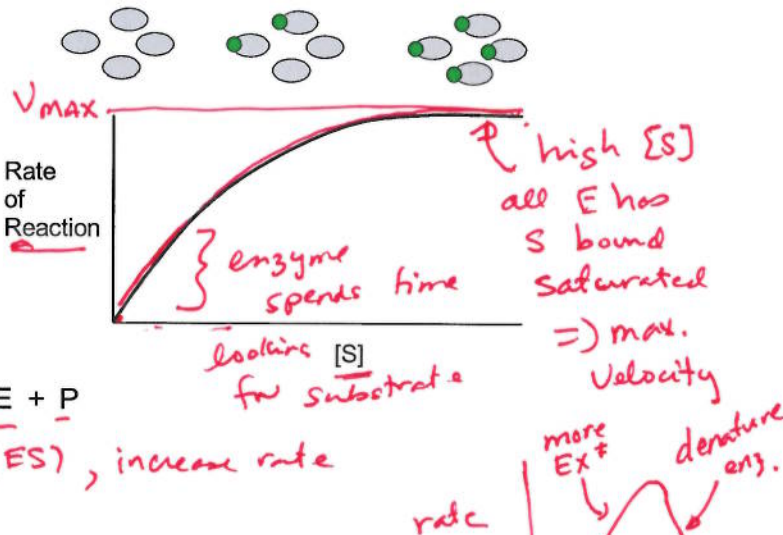 VMAX
Rate
of
Reaction
enzyme
spends time
looking
for substrate
[S]
high [S]
all E has
S bound
saturated
=) max.
velocity
E + P
ES), increase rate
more
EX‡
denature
enz.
rate